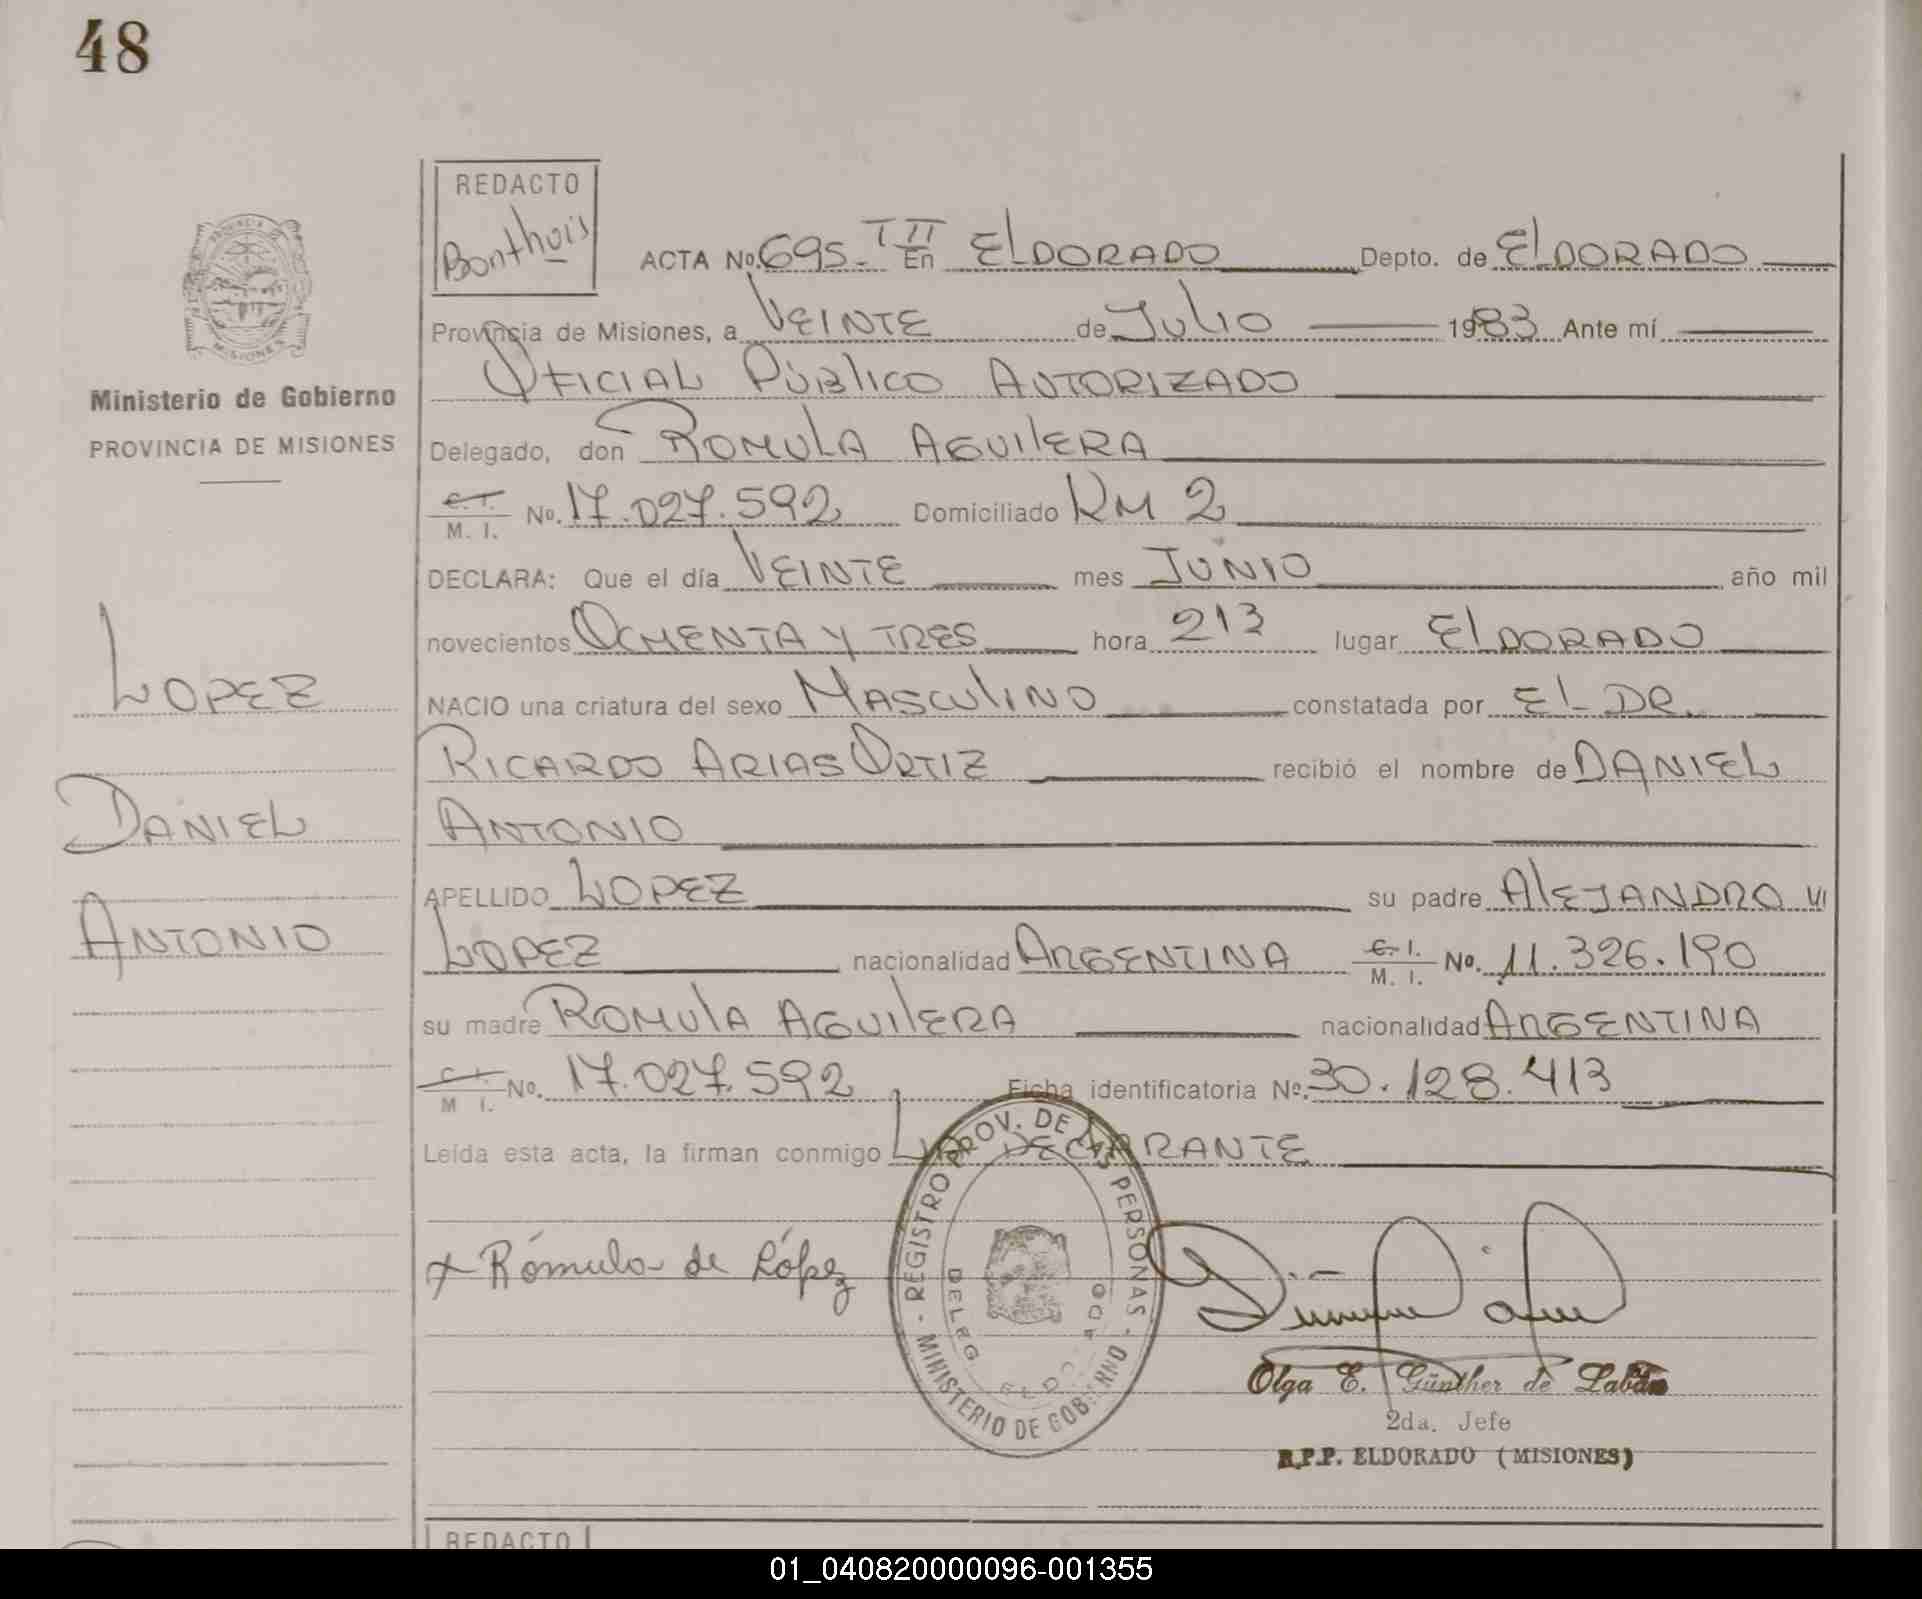 48
REDACTO
Bonthuis
ACTA No. 695 - T II En ELDORADO Depto. de ELDORADO
Provincia de Misiones, a VEINTE de JULIO 1983 Ante mí
OFICIAL PÚBLICO AUTORIZADO
Delegado, don ROMULA AGUILERA
C. I. M. I. No. 17.027.592 Domiciliado KM 2
DECLARA: Que el día VEINTE mes JUNIO año mil
novecientos OCHENTA Y TRES hora 213 lugar ELDORADO
NACIO una criatura del sexo MASCULINO constatada por EL DR.
RICARDO ARIAS ORTIZ recibió el nombre de DANIEL
ANTONIO
APELLIDO LOPEZ su padre ALEJANDRO
LOPEZ nacionalidad ARGENTINA C. I. M. I. No. 11.326.190
su madre ROMULA AGUILERA nacionalidad ARGENTINA
C. I. M I. No. 17.027.592 Ficha identificatoria No. 30.128.413
Leída esta acta, la firman conmigo LA DECLARANTE
+ Rómula de López
REGISTRO PROV. DE LAS PERSONAS - MINISTERIO DE GOBIERNO -
DELEG. ELDORADO
Olga E. Günther de
2da. Jefe
R.P.P. ELDORADO (MISIONES)
REDACTO
PROVINCIA DE MISIONES
Ministerio de Gobierno
PROVINCIA DE MISIONES
LOPEZ
DANIEL
ANTONIO
01_040820000096-001355